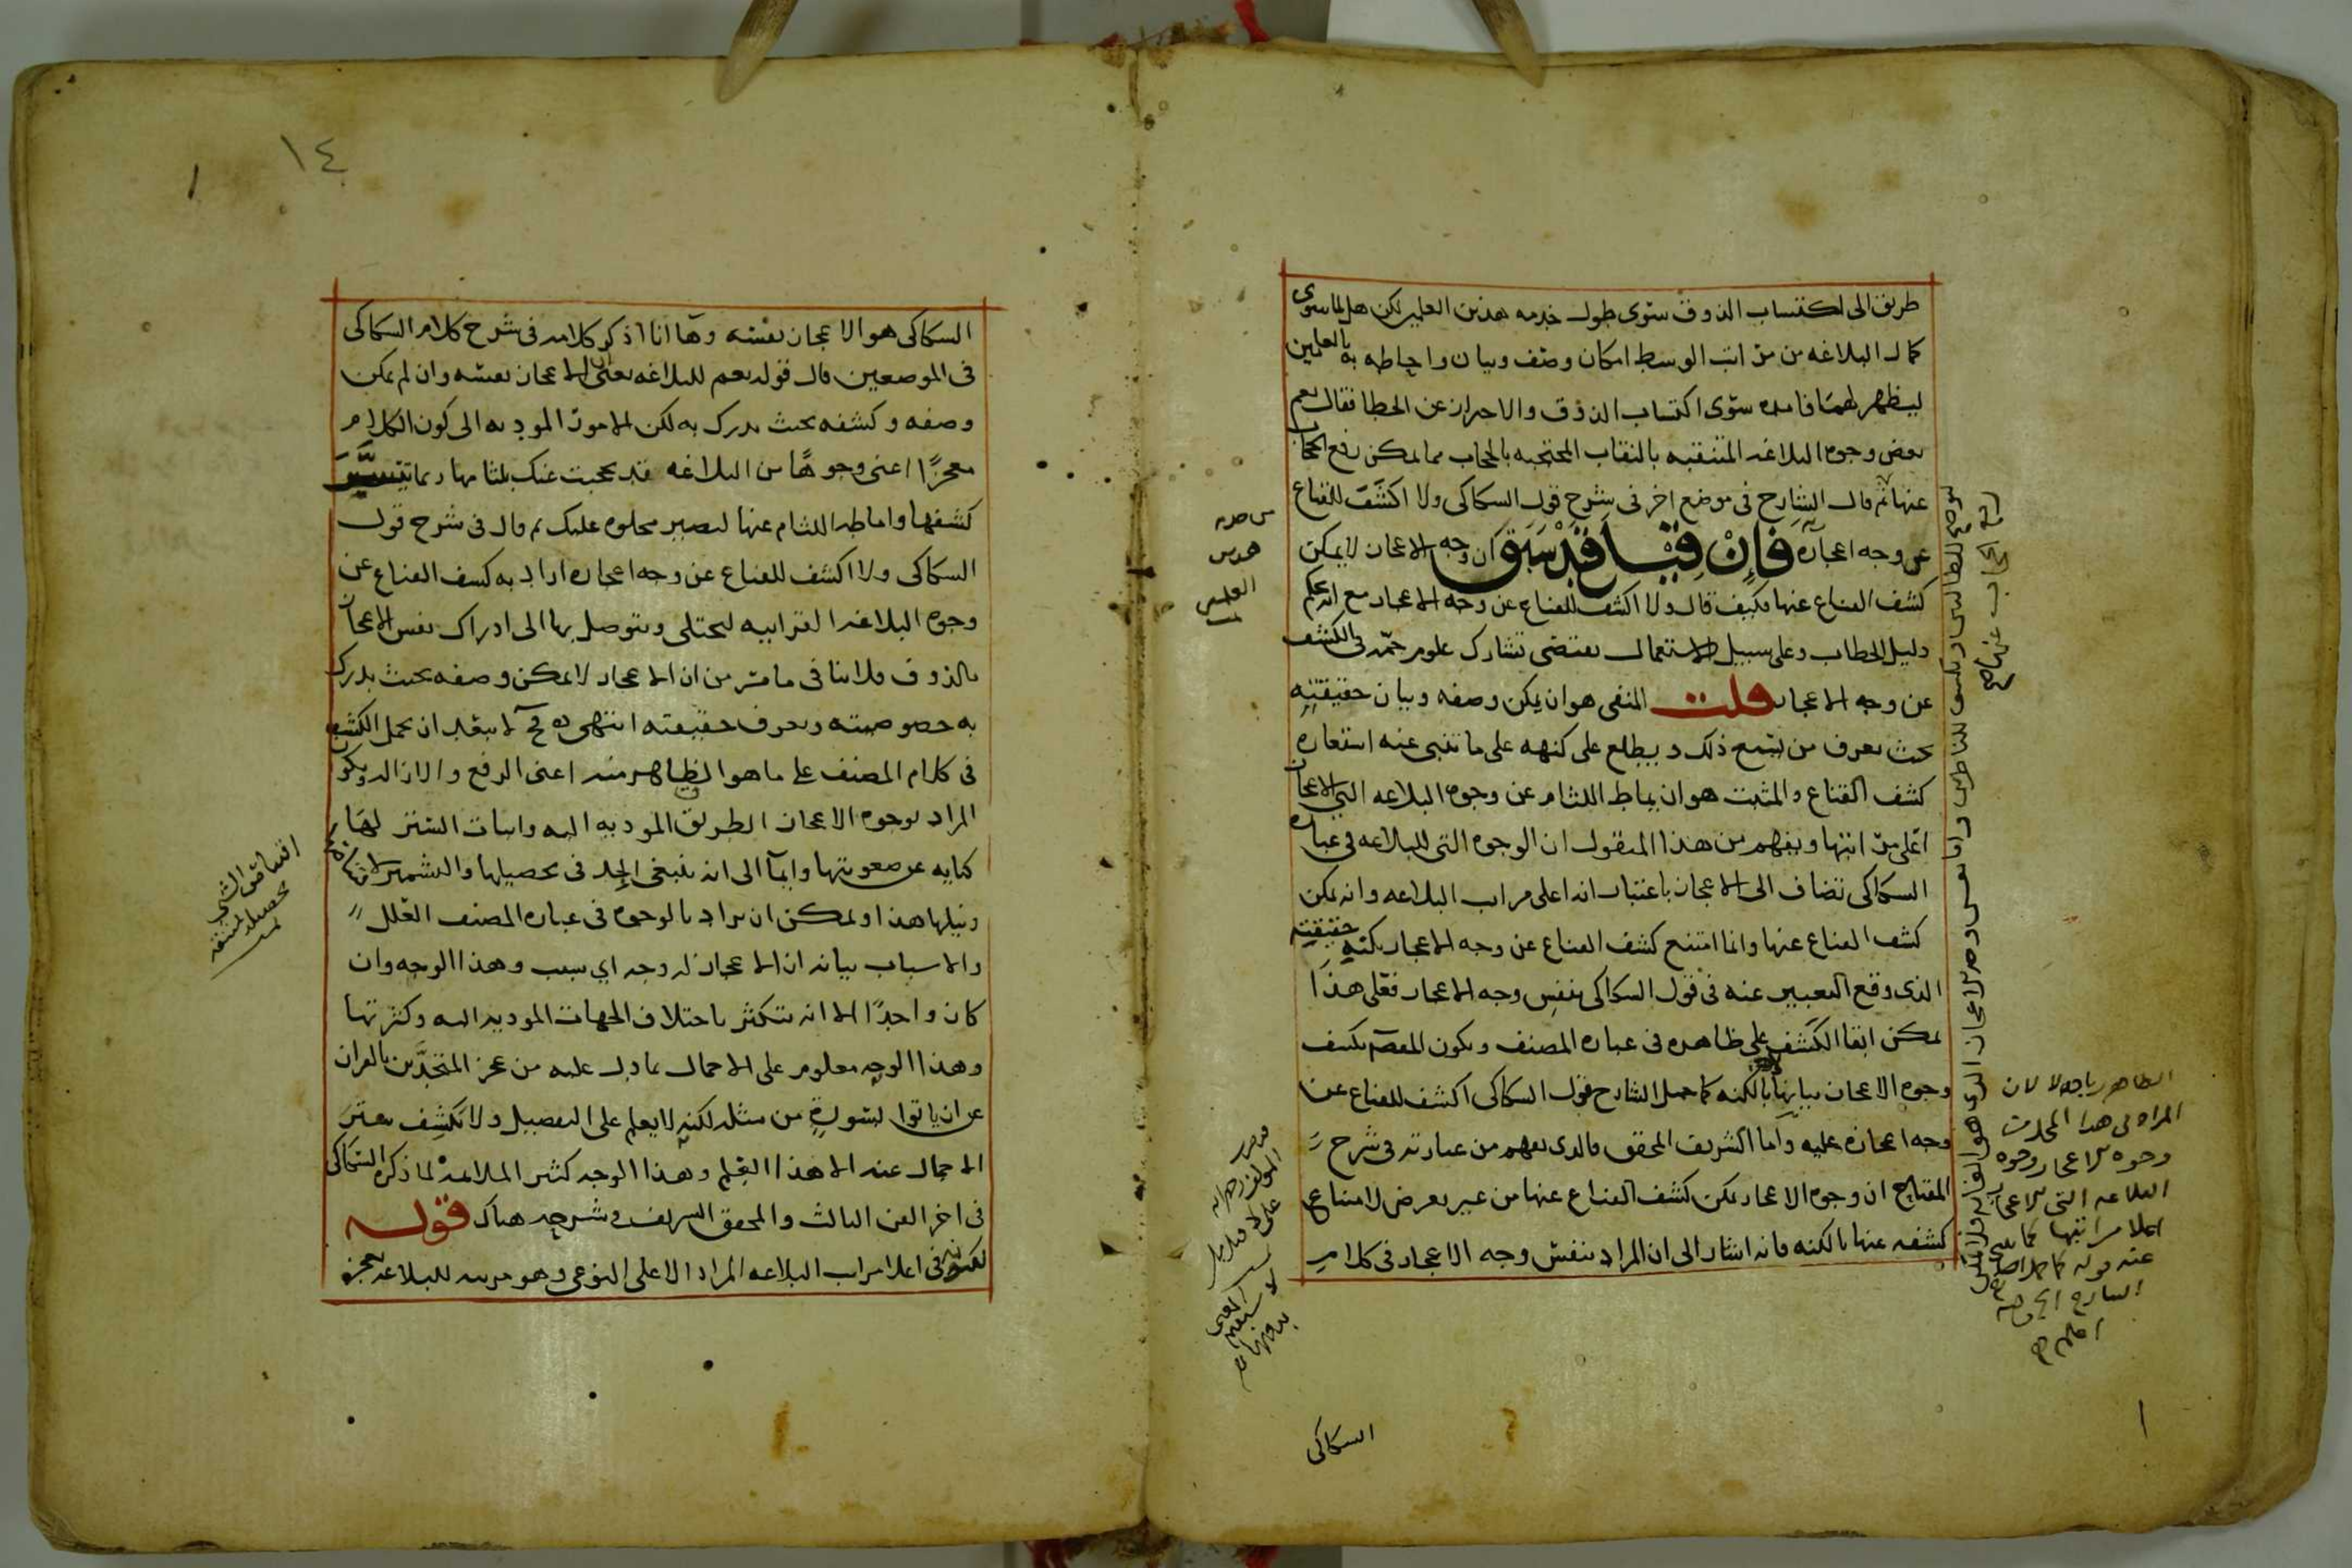 طريق الى اكتساب الذوق سوى طول خدمه هذين العلمين لكن هل لما سوى
كمال البلاغه من مراتب الوسط امكان وصف وبيان واحاطه به بالعلمين
ليظهر لهما فايده سوى اكتساب الذوق والاحتراز عن الخطا فقال نعم
بعض وجوه البلاغه المتنقبه بالنقاب المحتجبه بالحجاب مما يمكن رفع الحجاب
عنها ثم قال الشارح في موضع اخر في شرح قول السكاكى ولا اكشف للقناع
عن وجه اعجازه فإن قيل قد سبق ان وجه الاعجاز لا يمكن
كشف القناع عنها فكيف قال ولا اكشف للقناع عن وجه الاعجاز مع انه بحكم
دليل الخطاب وعلى سبيل الاستعمال يقتضى تشارك علوم جمّه في الكشف
عن وجه الاعجاز قلت المنفى هو ان يمكن وصفه وبيان حقيقته
بحيث يعرف من يتبع ذلك ويطلع على كنهه على ما تنبى عنه استعاره
كشف القناع والمثبت هو ان يماط اللثام عن وجوه البلاغه التي الاعجاز
اعلى مراتبها ويفهم من هذا المنقول ان الوجوه التى للبلاغه في عباره
السكاكى تضاف الى الاعجاز باعتبار انه اعلى مراتب البلاغه وانه يمكن
كشف القناع عنها وانما امتنع كشف القناع عن وجه الاعجاز بكنه حقيقته
الذى وقع التعبير عنه في قول السكاكى بنفس وجه الاعجاز فعلى هذا
يمكن ابقا الكشف على ظاهره في عباره المصنف ويكون المقصد بكشف
وجوه الاعجاز بيانها بالكنه كما حمل الشارح قول السكاكى اكشف للقناع عن
وجه اعجازه عليه واما الشريف المحقق فالذى يفهم من عبارته في شرح
المفتاح ان وجوه الاعجاز يمكن كشف القناع عنها من غير تعرض لامتناع
كشفه عنها بالكنه فانه اشار الى ان المراد بنفس وجه الاعجاز في كلام
السكاكى
من خدمه
هذين
العلمين
الظاهر
المراد في هذا
وجوه الاعجاز وجوه
البلاغه التى الاعجاز
اعلا مراتبها كما
عنه قوله كما حمل
الشارح
١٤
١
السكاكى هو الاعجاز نفسه وها انا اذكر كلامه في شرح كلام السكاكى
في الموضعين قال قوله نعم للبلاغه يعنى ان الاعجاز نفسه وان لم يمكن
وصفه وكشفه بحيث يدرك به لكن الامور الموديه الى كون الكلام
معجزًا اعنى وجوهًا من البلاغه قد تحجبت عنك بلثامها ربما تيسّر
كشفها واماطه اللثام عنها ليصير مجلوه عليك ثم قال في شرح قول
السكاكى ولا اكشف للقناع عن وجه اعجازه اراد به كشف القناع عن
وجوه البلاغه القرانيه لتجتلى ويتوصل بها الى ادراك نفس الاعجاز
بالذوق فلا ينافى ما مر من ان الاعجاز لا يمكن وصفه بحيث يدرك
به خصوصيته ويعرف حقيقته انتهى وح لا يبعد ان يحمل الكشف
في كلام المصنف على ما هو الظاهر منه اعنى الرفع والازاله ويكون
المراد بوجوه الاعجاز الطريق الموديه اليه واثبات الستر لها
كنايه عن صعوبتها وايماً الى انه ينبغى الجد في تحصيلها والتشمير لاقتناصها
ونيلها هذا ويمكن ان يراد بالوجوه في عباره المصنف العلل
والاسباب بيانه ان الاعجاز له وجه اي سبب وهذا الوجه وان
كان واحدًا الا انه يتكثر باختلاف الجهات الموديه اليه وكثرتها
وهذا الوجه معلوم على الاجمال بما دل عليه من عجز المتحدَّين بالقران
عن ان ياتوا بسورةٍ من مثله لكنه لا يعلم على التفصيل ولا تكشف ستر
الاجمال عنه الا هذا العلم وهذا الوجه كثير الملاءمة لما ذكره السكاكى
في اخر الفن الثالث والمحقق الشريف في شرحه هناك قوله
لكونه في اعلا مراتب البلاغه المراد الاعلى النوعى وهو مرتبه للبلاغه تعجز
اقتناص الشي
تحصيله بمشقه